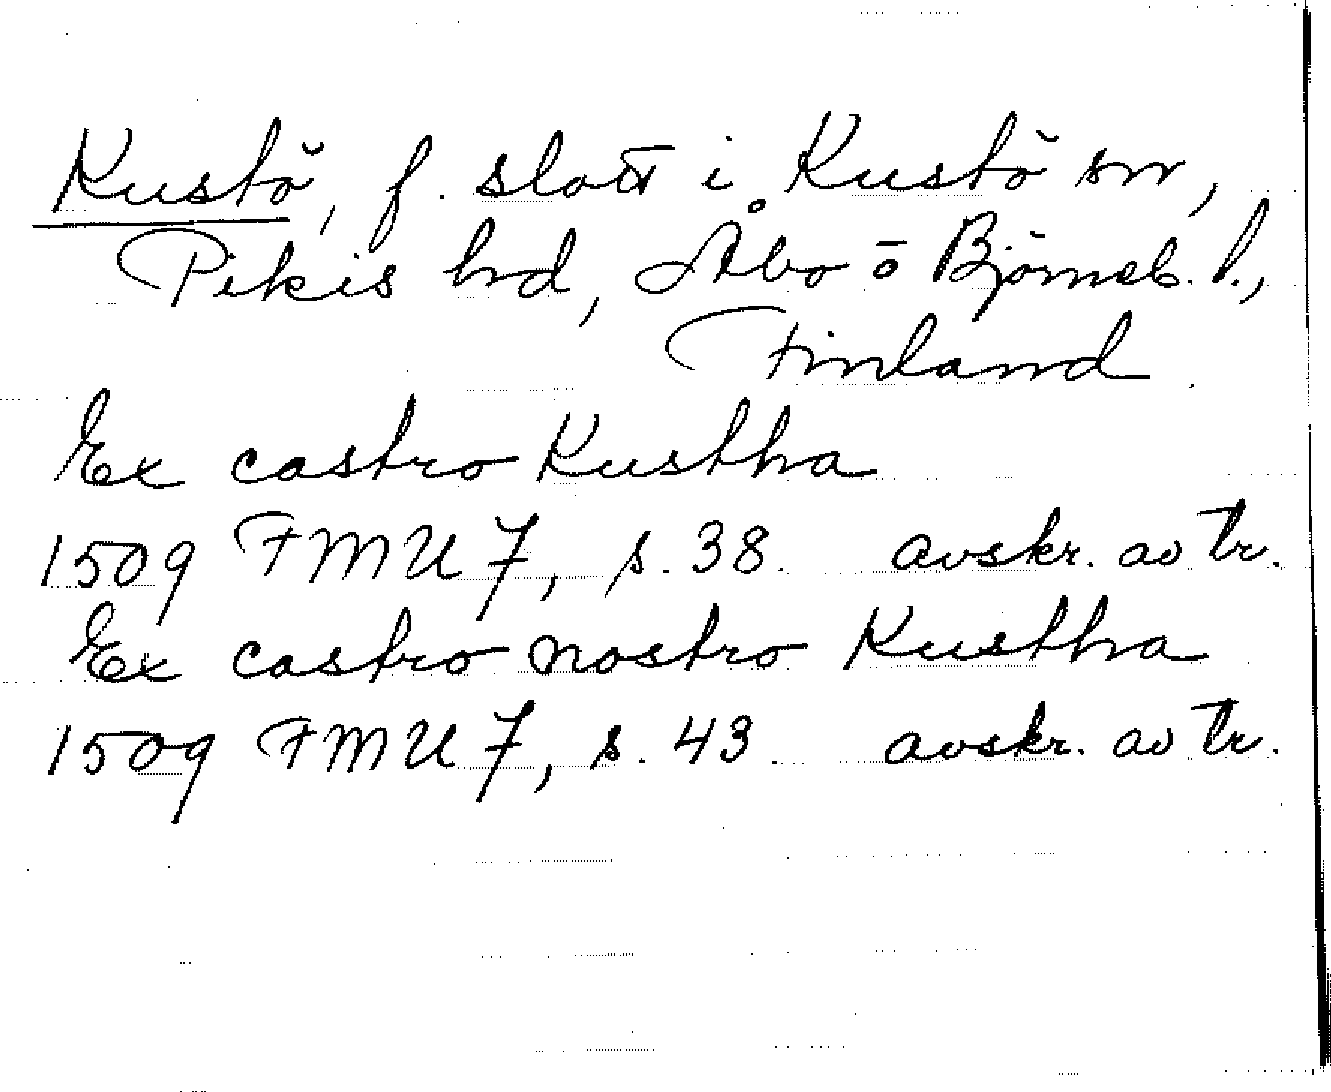 Kustö, f. slott i Kustö sn,
Pikis hd, Åbo o Björneb. l.,
Finland
Ex castro Kustha
1509 FMU 7, s. 38 avskr. av tr.
Ex castro nostro Kustha
1509 FMU 7, s. 43 avskr. av tr.